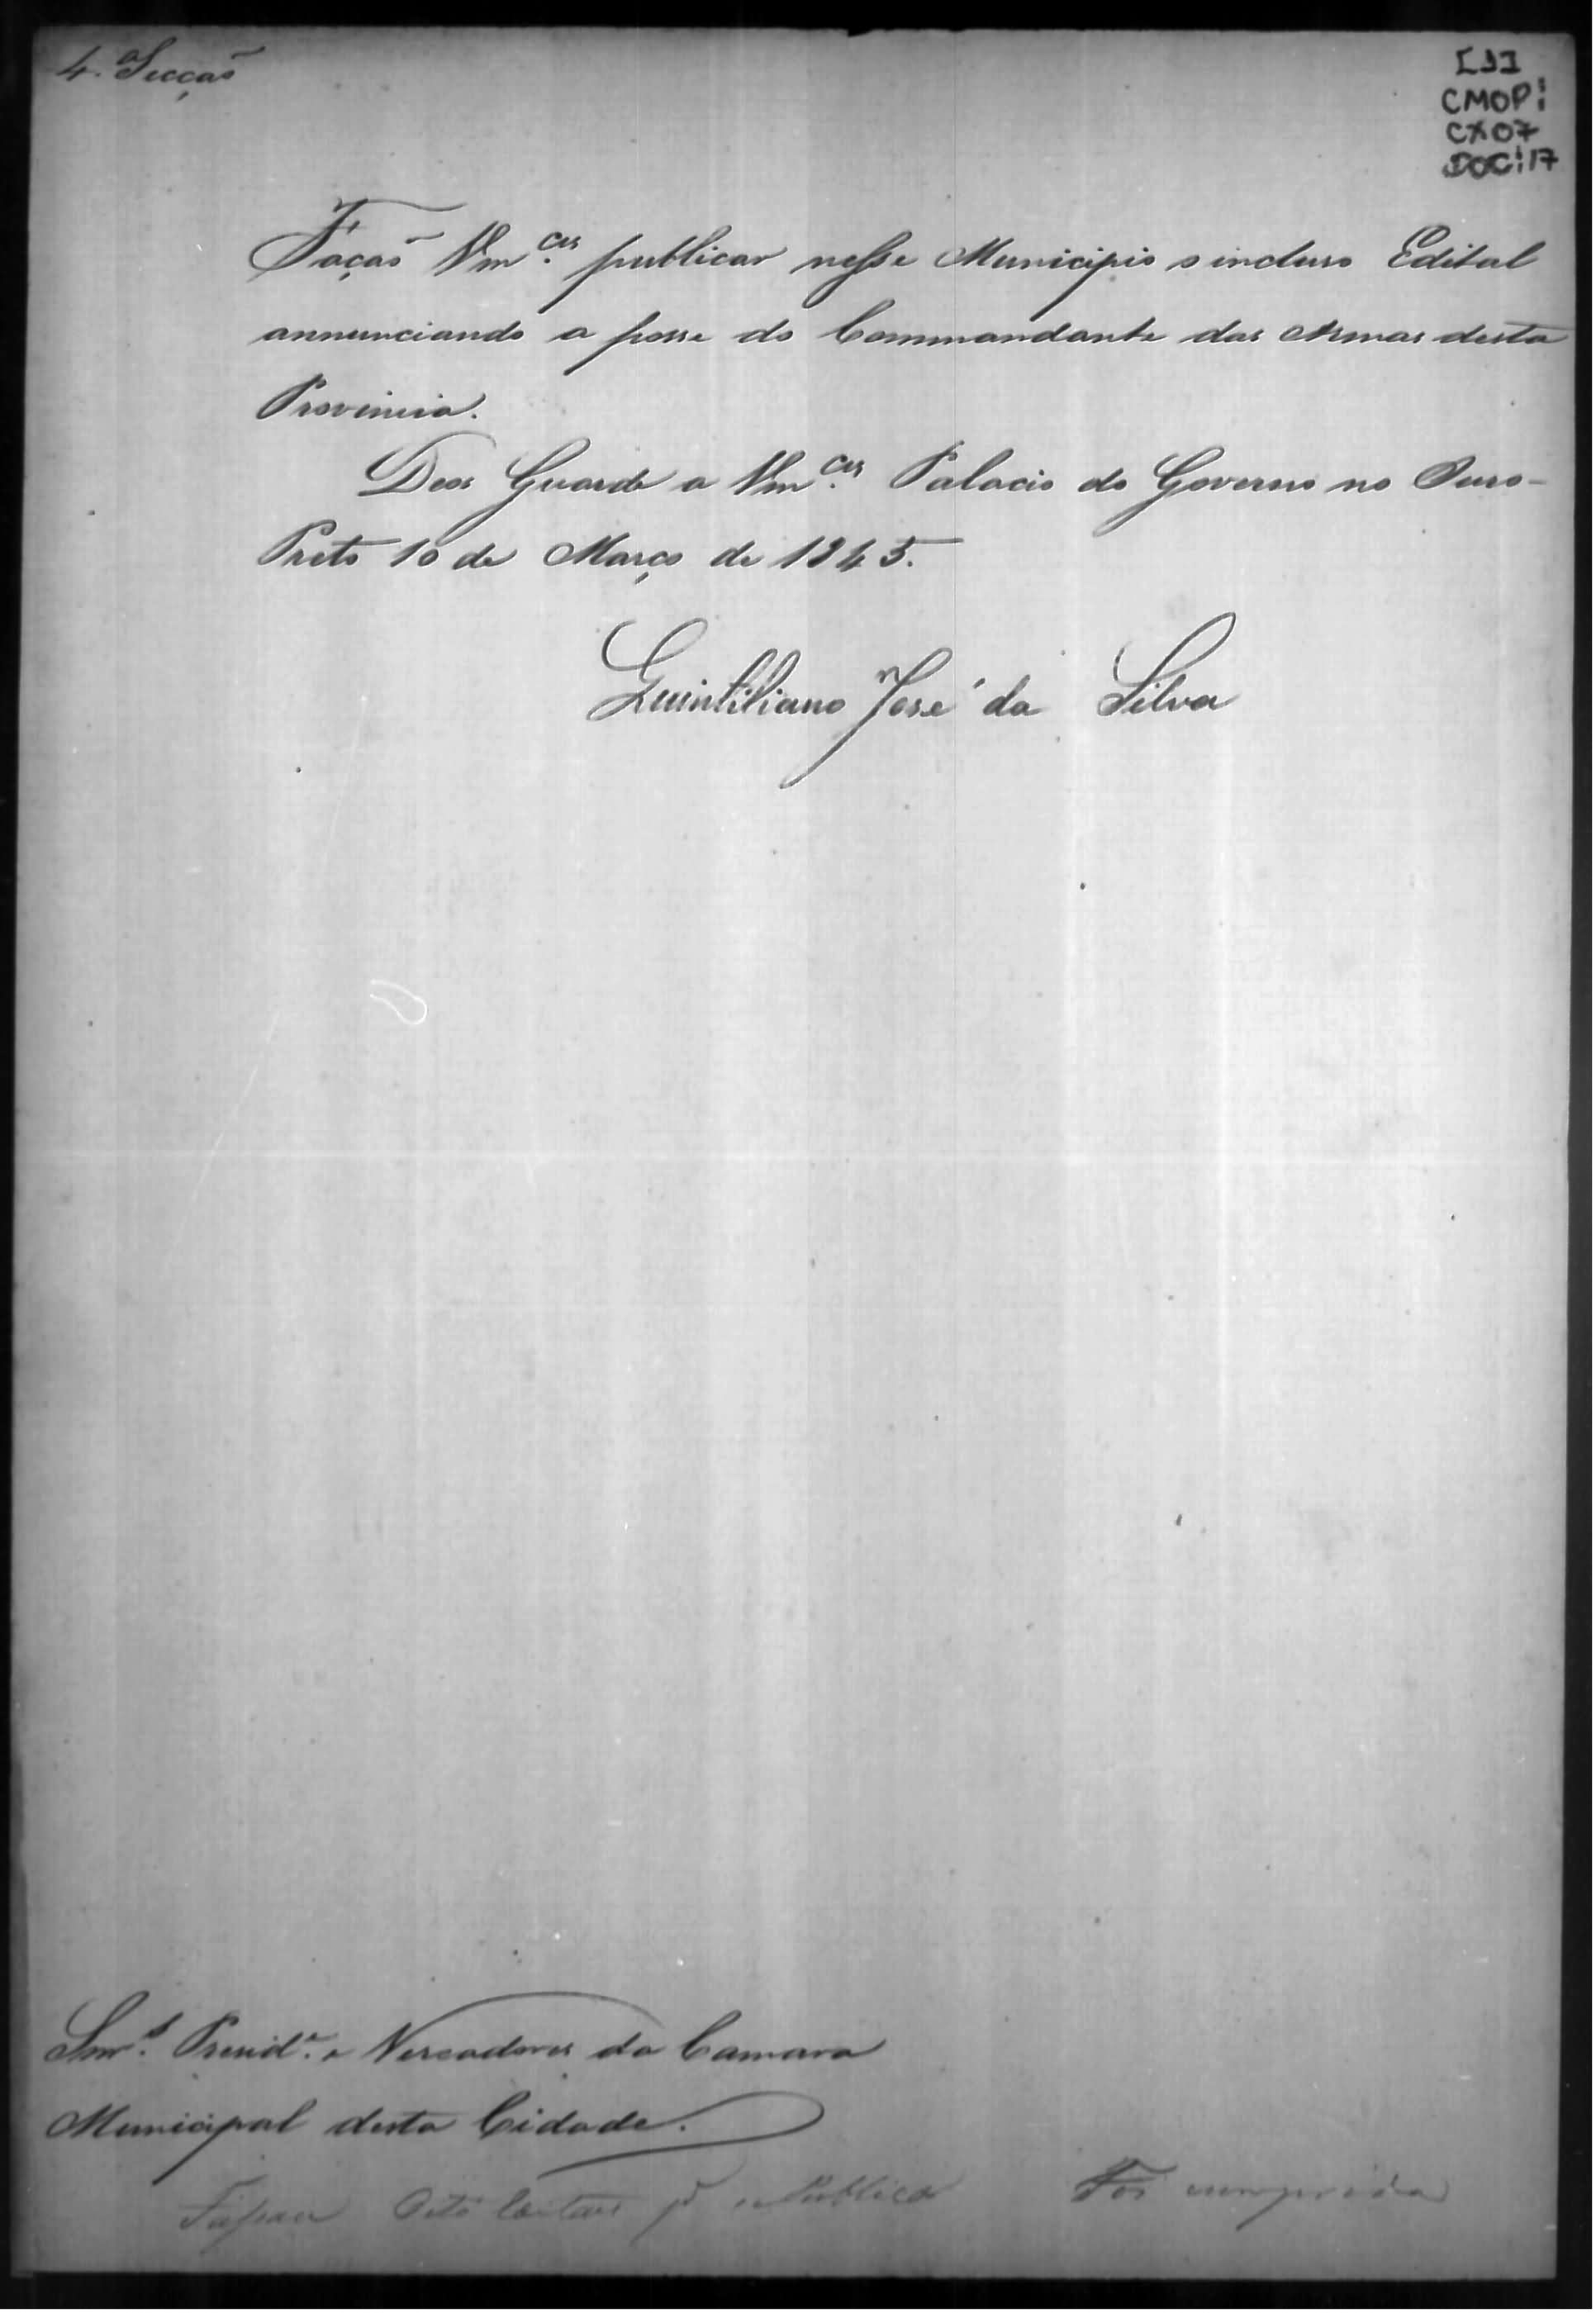 4.ª Secção
[1]
CMOP:
CX07
DOC:17
Fação Vm.ces publicar nesse Municipio o incluso Edital
annunciando a posse do Commandante das Armas desta
Provincia.
Deos Guarde a Vm.ces Palacio do Governo no Ouro-
Preto 10 de Março de 1845.
Quintiliano José da Silva
Snr.s Presid.e e Vereadores da Camara
Municipal desta Cidade.
Foi cumprida